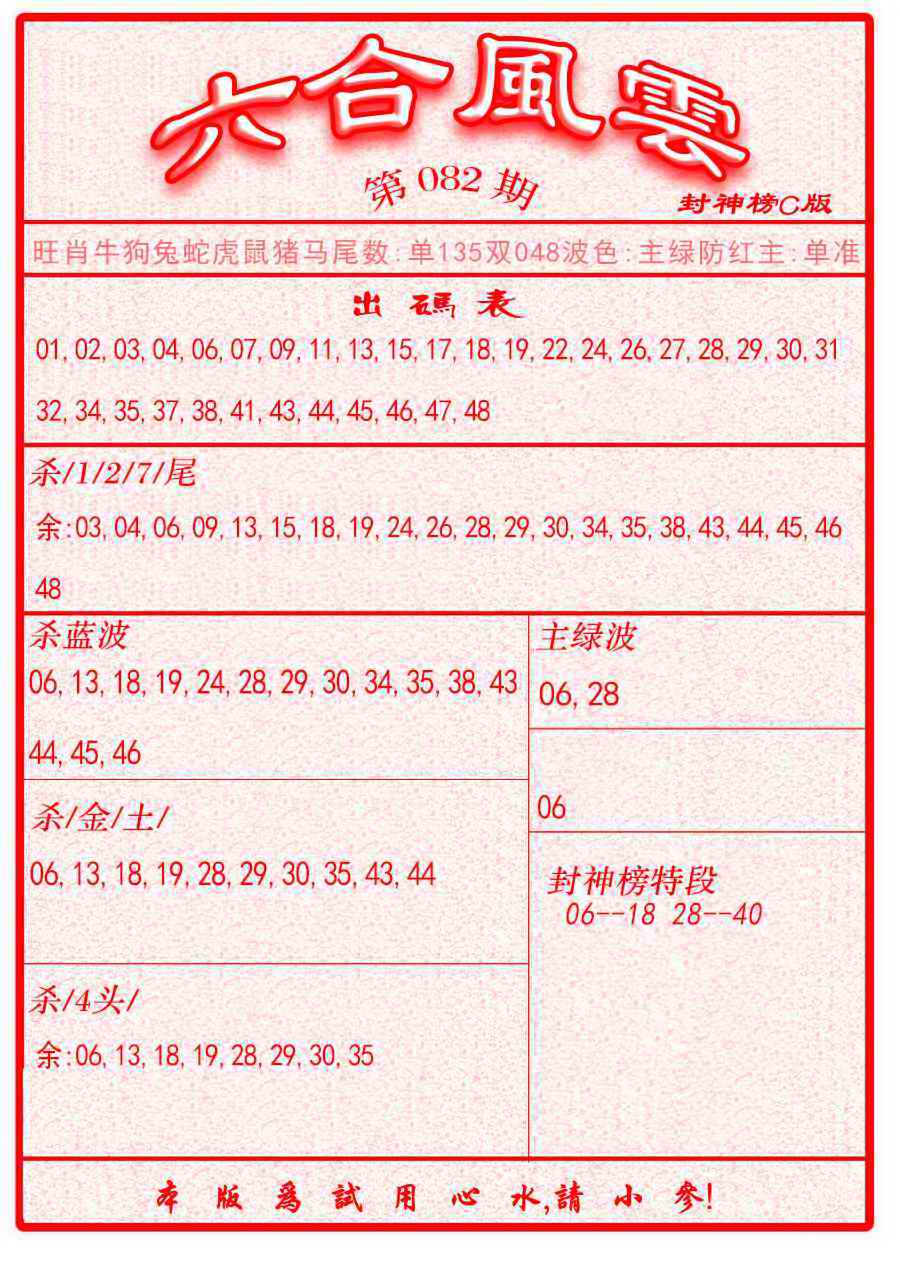 六合風雲
第082期
封神榜C版
旺肖牛狗兔蛇虎鼠猪马尾数:单135双048波色:主绿防红主:单准
出碼表
01,02,03,04,06,07,09,11,13,15,17,18,19,22,24,26,27,28,29,30,31
32,34,35,37,38,41,43,44,45,46,47,48
杀/1/2/7/尾
余:03,04,06,09,13,15,18,19,24,26,28,29,30,34,35,38,43,44,45,46
48
杀蓝波
06,13,18,19,24,28,29,30,34,35,38,43
44,45,46
主绿波
06,28
06
杀/金/土/
06,13,18,19,28,29,30,35,43,44
封神榜特段
06--18 28--40
杀/4头/
余:06,13,18,19,28,29,30,35
本版爲試用心水,請小參!